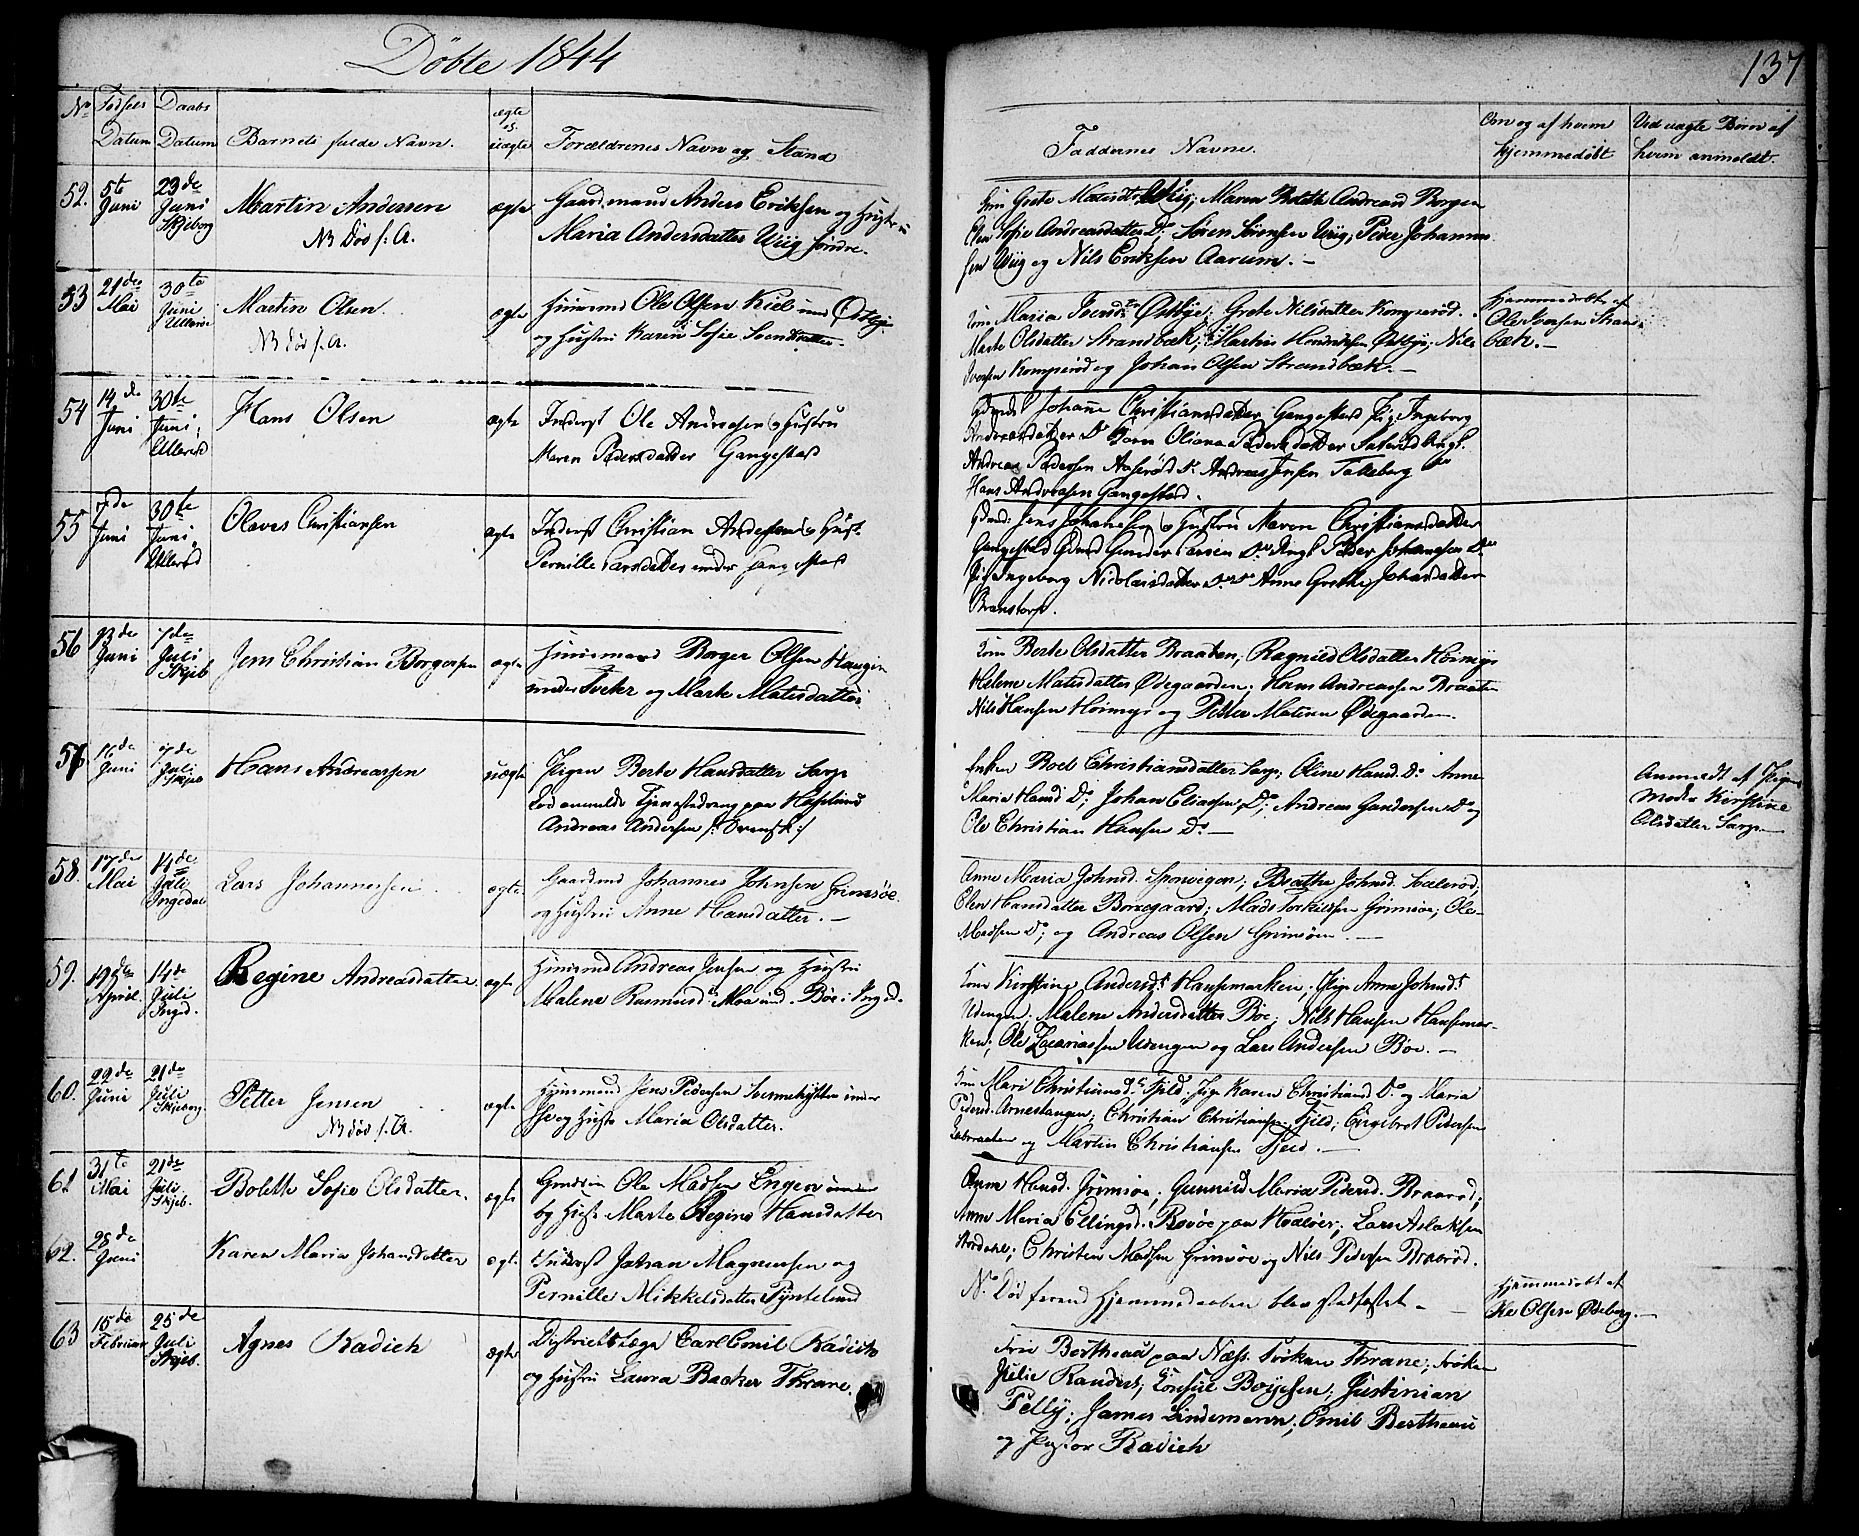 Döbte 1844
137
No
Fødsels Datum
Daabs Datum
Barnets fulde Navn.
ægte el. uægte
Forældrenes Navn og Stand
Faddernes Navne.
Om og af hvem hjemmedøbt
Ved uægte Børn af hvem anmeldt.
52. 5te Juni 23de Juni Skjeborg
Martin Andersen
NB Død s. A.
ægte
Gaardmand Anders Eriksen og Hustru
Maria Andersdatter Wiig søndre.
Kone Grete Matisdtr Wiig; Maren Andreasd Borgen
Elen Sofie Andreasdatter Do Søren Sørensen Wiig; Peder Johannes
sen Wiig og Nils Eriksen Aarum. -
53 21de Mai 30te Juni Ullerød
Martin Olsen
NB død s. A.
ægte
Huusmd Ole Olsen Kiil und Østbye
og Hustru Karen Sofie Svendsdatter
Kone Maria Østbye; Grete Nilsdatter Komperød.
Marte Olsdatter Strandbæk; Martin Østbye; Nils
Iversen Komperød og Johan Olsen Strandbæk. -
Hjemmedøbt af
Ole Iversen Strand-
bæk. -
54 14de Juni 30te Juni, Ullerød
Hans Olsen
ægte
Inderst Ole Andresen og Hustru
Maren Pedersdatter Gangestad
Johanne Christiansdatter Gangestad Pig. Ingeborg
Andreasdatter Do Oliana Pedersdatter
Andreas Pedersen Do Andreas Jensen
Hans Andreasen Gangestad.
55 7de Juni 30te Juni, Ullerød
Olaves Christiansen
ægte
Inderst Christian Andersen og Hust.
Pernille Larsdatter under Gangestad
Gdmd: Jens Johanesen og Hustru Maren Christiansdatter
Gangestad Gdmd Gunder Larsen Do Ungk Peder Johanesen Do
Pig Ingeborg Nicolaisdatter Do Anne Grethe Johansdatter
Branstorp.
56 13de Juni 7de Juli Skjeb
Jens Christian Borgersen
ægte
Huusmand Borger Olsen Haugen
under Tveter og Marte Matisdatter
Kone Berte Olsdatter Braaten; Ragnild Olsdatter
Helene Matisdatter Ødegaarden; Hans Andreassen Braaten
Nils Hansen og Petter Ødegaarden.
57 16de Juni 7de Juli Skjeb
Hans Andreassen
uægte
Pigen Berte Hansdatter Sarp
Andreas Andersen /: Svensk :/
Enken Boel Christiansdatter Sarp; Oline Hansd. Do Anne
Maria Hansd Do; Johan Eliassen Do; Andreas Gundersen Do og
Ole Christian Hansen Do -
Anmeldt af Pigens
Moder Kirstine
Olsdatter Sarp -
58. 17de Mai 14de Juli Ingedal
Lars Johannessen
ægte.
Gaardmd Johannes Johnsen Grimsøe.
og Hustru Anne Hansdatter. -
Anne Maria Johnsd. Spone; Johnsd.
Elen Hansdatter Borregaard; Mads Torkildsen Grimsøe; Ole
Madsen Do; og Andreas Olsen Grimsøen. -
59. 19de April. 14de Juli Inged.
Regine Andreasdatter
ægte
Huusmd Andreas Jensen og Hustru
Malene Rasmusd. Moe und. Böe i Inged.
Kone Kirstine Andersd. Hansemarken; Pige Anne Johnsd.
Udengen; Malene Andersdatter Böe; Nils Hansen Hansemar-
ken; Ole Zacariassen Udengen og Lars Andersen Böe. -
60. 22de Juni 21de Juli Skjeberg
Petter Jensen
NB død s. A.
ægte
Huusmand Jens Pedersen under
og Hustr Maria Olsdatter.
Kone Mari Christiansd. Fjeld; Pige Karen Christiansd Do og Maria
Pedersd. Arnestangen; Christian Christiansen Fjeld; Engebret Pedersen
og Martin Christiansen Fjeld. -
61 31te Mai 21de Juli Skjeb.
Bolette Sofie Olsdatter.
ægte
Ole Madsen Engen
og Hustr Marte Regine Hansdatter
Anne Hansd. Grimsøe; Gunnild Maria Pedersd. Braarød;
Anne Maria Ellingsd. paa Hvaløer; Lars Aslaksen
Christen Madsen Grimsøe og Nils Pedersen Braarød.
62. 28de Juni
Karen Maria Johansdatter
ægte.
Inderst Johan Magnussen og
Pernille Mikkelsdatter Pyntelund
Død førend Hjemmedaaben blev stadfæstet -
Hjemmedøbt af
Ole Olsen Ødeberg. -
63 15de Februar 25de Juli Skjeb.
Agnes Radich
ægte
Districtslæge Carl Emil Radich
og Hustru Laura Backer Thrane.
Frue Bertheau paa Næss. Frøken Thrane; Frøken
Julie Randers; Consul Boyesen; Justinian
Pelly; James Lindemann; Emil Bertheau
og Pastor Radich